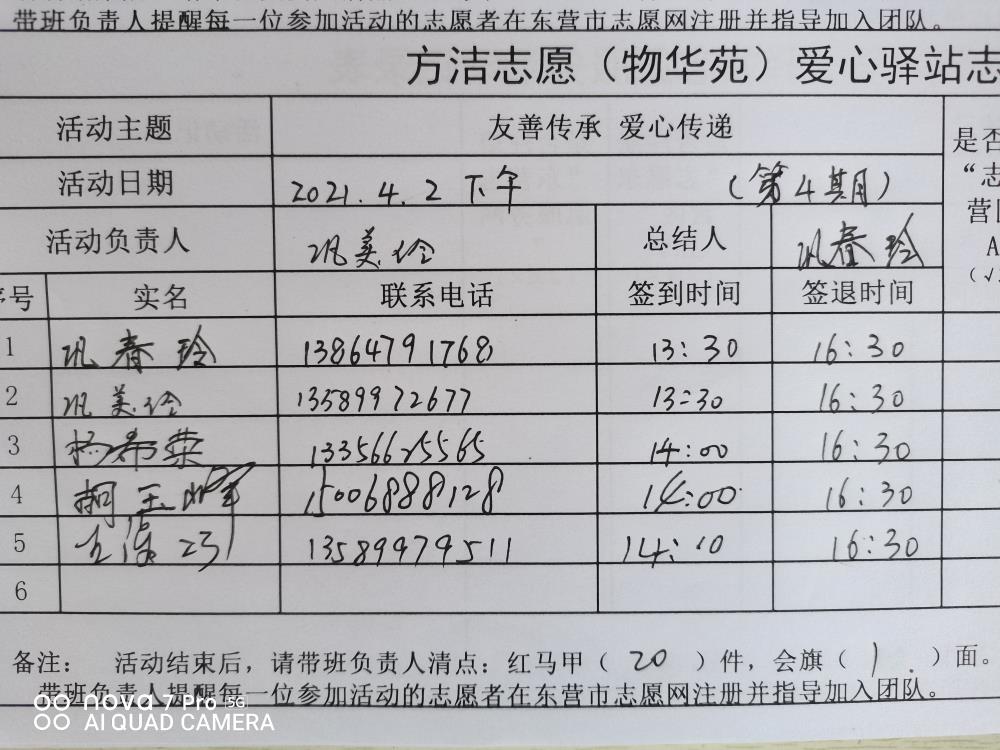 带班负责人提醒每一位参加活动的志愿者在东营市志愿网注册并指导加入团队。
方洁志愿（物华苑）爱心驿站志
活动主题 友善传承 爱心传递 是否
活动日期 2021.4.2 下午 （第4期） “志
营
活动负责人 巩美玲 总结人 巩春玲 A
（√
序号 实名 联系电话 签到时间 签退时间
1 巩春玲 13864791768 13:30 16:30
2 巩美玲 13589972677 13:30 16:30
3 杨希荣 13356625565 14:00 16:30
4 玉 15006888128 14:00 16:30
5 13589979511 14:10 16:30
6
备注： 活动结束后，请带班负责人清点：红马甲（ 20 ）件，会旗（ 1 ）面。
带班负责人提醒每一位参加活动的志愿者在东营市志愿网注册并指导加入团队。
nova 7 Pro 5G
AI QUAD CAMERA